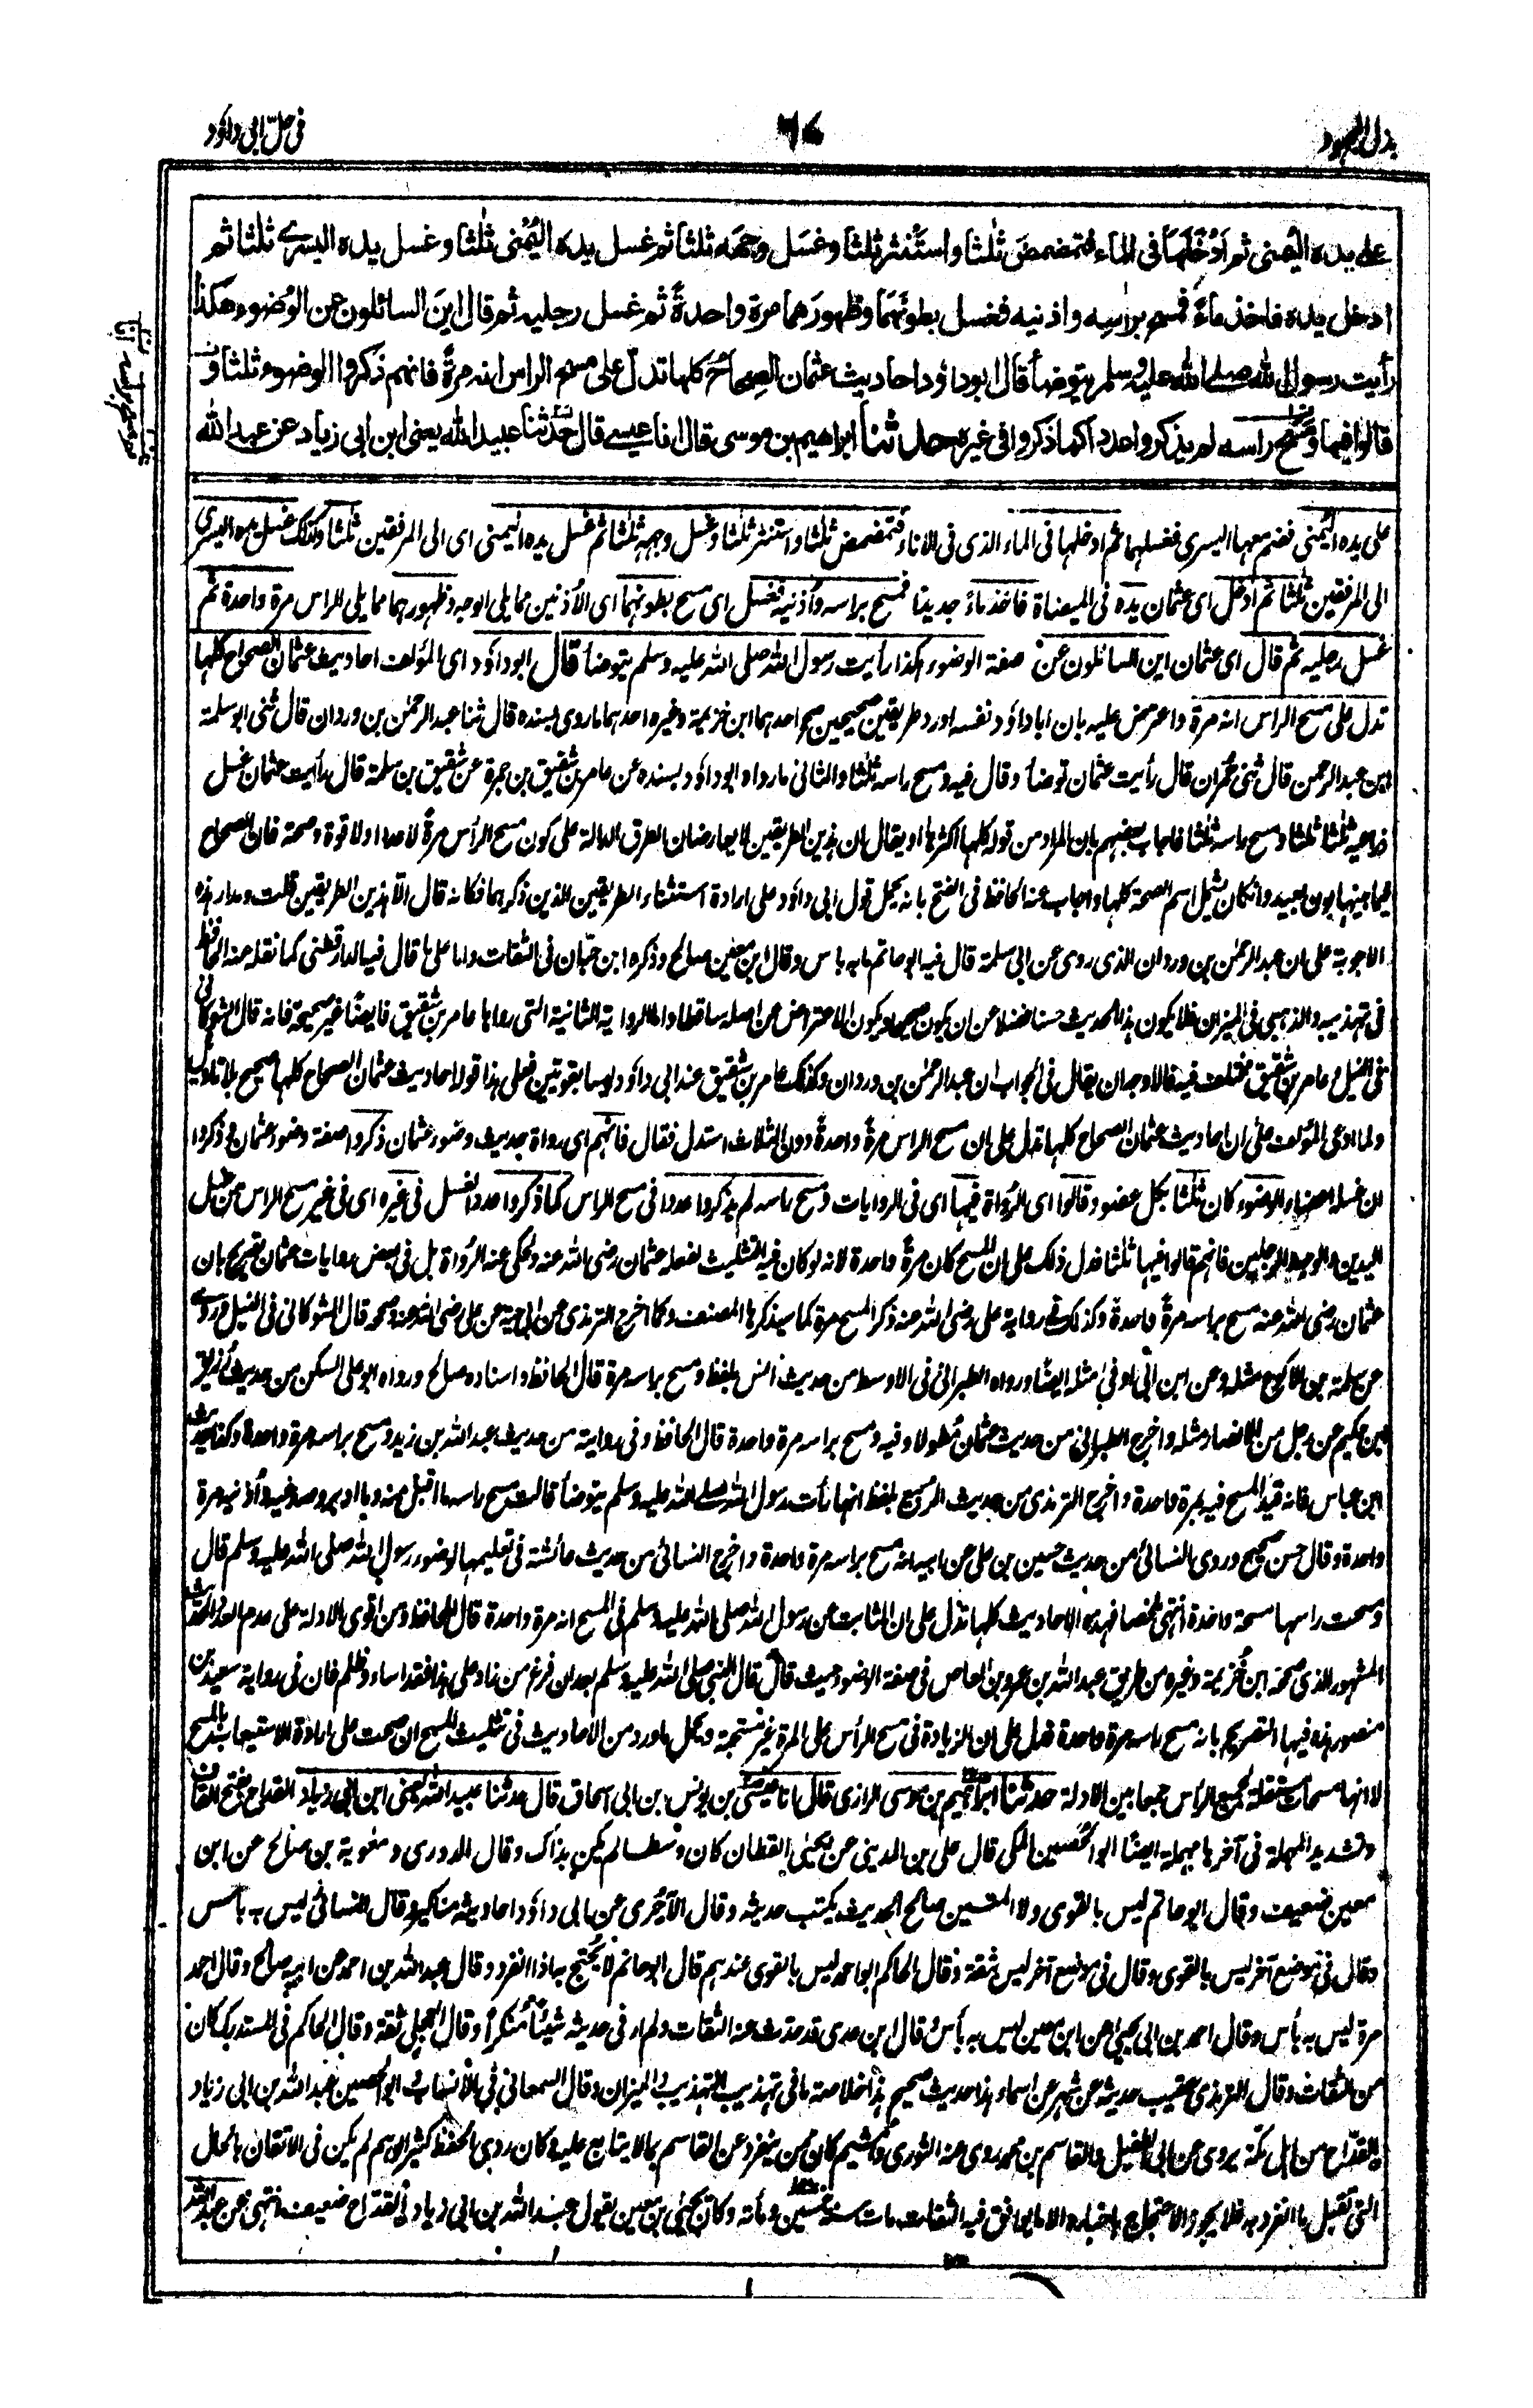 بذل المجهود
٦٧
في حل ابي داؤد
على يده اليمنى ثم ادخلها في الماء فتمضمض ثلثا واستنثر ثلثا وغسل وجهه ثلثا ثم غسل يده اليمنى ثلثا وغسل يده اليسرى ثلثا ثم
ادخل يده فاخذ ماءً فمسح براسه واذنيه فغسل بطونهما وظهورهما مرة واحدةً ثم غسل رجليه ثم قال اين السائلون عن الوضوء هكذا
رأيت رسول الله صلى الله عليه وسلم يتوضأ قال ابو داؤد احاديث عثمان الصحاح كلها تدل على مسح الراس انه مرةً فانهم ذكروا الوضوء ثلثا و
قالوا فيها ومسح راسه لم يذكروا عددا كما ذكروا في غيره حدثنا ابراهيم بن موسى قال انا عيسى قال حدثنا عبيد الله يعنى ابن ابى زياد عن عبد الله
على يده اليمنى فضم معها اليسرى فغسلهما ثم ادخلها في الماء الذى في الاناء فتمضمض ثلثا واستنثر ثلثا وغسل وجهه ثلثا ثم غسل يده اليمنى اى الى المرفقين ثلثا وكذلك غسل يده اليسرى
الى المرفقين ثلثا ثم ادخل اى عثمان يده في الميضاة فاخذ ماءً جديدا فمسح براسه واذنيه فغسل اى مسح بطونهما اى الاُذنين مما يلى الوجه وظهورهما مما يلى الراس مرة واحدة ثم
غسل رجليه ثم قال اى عثمان اين السائلون عن صفة الوضوء هكذا رأيت رسول الله صلى الله عليه وسلم يتوضأ قال ابو داؤد اى المؤلف احاديث عثمان الصحاح كلها
تدل على مسح الراس انه مرة واعترض عليه بان ابا داؤد نفسه اورد طريقين صحيحين صحح احدهما ابن خزيمة وغيره احدهما ما روى بسنده قال ثنا عبد الرحمٰن بن وردان قال ثنى ابو سلمة
بن عبد الرحمن قال ثنى حُمران قال رأيت عثمان توضأ وقال فيه ومسح راسه ثلثا والثانى ما رواه ابو داؤد بسنده عن عامر بن شقيق بن جمرة عن شقيق بن سلمة قال رأيت عثمان غسل
ذراعيه ثلثا ثلثا ومسح راسه ثلثا فاجاب بعضهم بان المراد من قوله كلها اكثرها او يقال ان هذين الطريقين لا يعارضان الطرق الدالة على كون مسح الرأس مرةً لا عددا ولا قوة وصحة فان الصحاح
فيما بينها بون بعيد وان كان يشمل اسم الصحة كلها واجاب عنه الحافظ في الفتح بانه يحمل قول ابى داؤد على ارادة استثناء الطريقين الذين ذكرهما فكانه قال الا هذين الطريقين قلت ومدار هذه
الاجوبة على ان عبد الرحمٰن بن وردان الذى روى عن ابى سلمة قال فيه ابو حاتم ما به باس وقال ابن معين صالح وذكره ابن حبّان في الثقات واما على ما قال فيه الدارقطنى كما نقله عنه الحافظ
في تهذيبه والذهبى في الميزان فلا يكون هذا الحديث حسنا فضلا عن ان يكون صحيحا ويكون الاعتراض من اصله ساقطا واما الرواية الثانية التى رواها عامر بن شقيق فايضًا غير صحيحة فانه قال الشوكانى
في النيل وعامر بن شقيق مختلف فيه فالاوجه ان يقال في الجواب ان عبد الرحمٰن بن وردان وكذلك عامر بن شقيق عند ابى داؤد ليسا بقويين فعلى هذا قوله احاديث عثمان الصحاح كلها صحيح بلا تاويل
ولما ادعى المؤلف على ان احاديث عثمان الصحاح كلها تدل على ان مسح الراس مرةً واحدةً دون الثلاث استدل فقال فانهم اى رواة حديث وضوء عثمان ذكروا صفة وضوء عثمان وذكروا
ان غسله اعضاء الوضوء كان ثلثا بكل عضو وقالوا اى الرواة فيها اى في الروايات ومسح راسه لم يذكروا عددا في مسح الراس كما ذكروا عدد الغسل في غيره اى في غير مسح الراس من غسل
اليدين والوجه والرجلين فانهم قالوا فيها ثلثا فدل ذلك على ان المسح كان مرةً واحدة لانه لو كان فيه التثليث لفعله عثمان رضى الله عنه وحكى عنه الرُواة بل في بعض روايات عثمان تصريح بان
عثمان رضى الله عنه مسح براسه مرةً واحدةً وكذلك في رواية على رضى الله عنه ذكر المسح مرة كما سيذكرها المصنف وكما اخرج الترمذى عن ابى حية عن على رضى الله عنه وصححه قال الشوكانى في النيل وروى
عن سلمة بن الاكوع مثله وعن ابن ابى اوفى مثله ايضًا ورواه الطبرانى في الاوسط من حديث انس بلفظ ومسح براسه مرة قال الحافظ واسناده صالح ورواه ابو على السكن من حديث رزيق
بن حكيم عن رجل من الانصار مثله واخرج الطبرانى من حديث عثمان مُطولا وفيه ومسح براسه مرة واحدة قال الحافظ وفى رواية من حديث عبد الله بن زيد ومسح براسه مرة واحدة وكذا حديث
ابن عباس فانه قيد المسح فيه بمرة واحدة واخرج الترمذى من حديث الربيع بلفظ انها رأت رسول الله صلى الله عليه وسلم يتوضأ قالت مسح راسه ما اقبل منه وما ادبر وصدغيه واُذنيه مرة
واحدة وقال حسن صحيح وروى النسائى من حديث حسين بن على عن ابيه انه مسح براسه مرة واحدة واخرج النسائى من حديث عائشة في تعليمها لوضوء رسول الله صلى الله عليه وسلم قال
ومسحت راسها مسحة واحدة انتهى ملخصا فهذه الاحاديث كلها تدل على ان الثابت عن رسول الله صلى الله عليه وسلم في المسح انه مرة واحدة قال الحافظ ومن اقوى الادلة على عدم العدد الحديث
المشهور الذى صححه ابن خُزيمة وغيره من طريق عبد الله بن عمرو بن العاص في صفة الوضوء حيث قال قال النبى صلى الله عليه وسلم بعد ان فرغ من زاد على هذا فقد اساء وظلم فان في رواية سعيد بن
منصور هذه فيها التصريح بانه مسح راسه مرة واحدة فدل على ان الزيادة في مسح الرأس على المرة غير مستحبة ويحمل ما ورد من الاحاديث في تثليث المسح ان صحت على ارادة الاستيعاب بالمسح
لا انها مسحات مستقلة لجميع الراس جمعا بين الادلة حدثنا ابراهيم بن موسى الرازى قال انا عيسى بن يونس بن ابى اسحاق قال حدثنا عبيد الله يعنى ابن ابى زياد القداح بفتح القاف
وتشديد المهملة في آخرها مهملة ايضًا ابو الحُصين المكى قال على بن المدينى عن يحيى القطان كان وسطا لم يكن بذاك وقال الدورى ومعوية بن صالح عن ابن
معين ضعيف وقال ابو حاتم ليس بالقوى ولا المتين صالح الحديث يكتب حديثه وقال الآجُرى عن ابى داؤد احاديثه مناكير وقال النسائى ليس به باس
وقال في موضع آخر ليس بالقوى وقال في موضع آخر ليس ثقة وقال الحاكم ابو احمد ليس بالقوى عندهم قال ابو حاتم لا يُحتج به اذا انفرد وقال عبد الله بن احمد عن ابيه صالح وقال احمد
مرة ليس به بأس وقال احمد بن ابى يحيى عن ابن معين ليس به بأس قال ابن عدى قد حدث عنه الثقات ولم ار في حديثه شيئًا مُنكرا وقال العجلى ثقة وقال الحاكم في المستدرك كان
من الثقات وقال الترمذى عقيب حديثه عن شهر عن اسماء هذا حديث صحيح هذا خلاصة ما في تهذيب التهذيب والميزان وقال السمعانى في الانساب ابو الحصين عبد الله بن ابى زياد
القدّاح من اهل مكة يروى عن ابى الطفيل والقاسم بن محمد روى عنه الثورى وهشيم كان ممن ينفرد عن القاسم بما لا يتابع عليه وكان ردى الحفظ كثير الوهم لم يكن في الاتقان بالحال
التى تقبل ما انفرد به فلا يجوز الاحتجاج باخباره الا ما يوافق فيه الثقات مات سنة خمسين ومأته وكان يحيى بن معين يقول عبد الله بن ابى زياد القداح ضعيف انتهى عن عبد الله